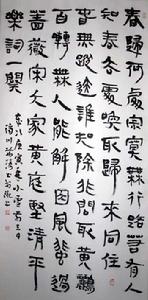 春歸何處寂寞無行路若有人
知春去處喚取歸來同住
春無蹤迹誰知除非問取黃鸝
百囀無人能解因風飛過
薔薇宋大家黃庭堅清平
樂詞一闋
庚寅